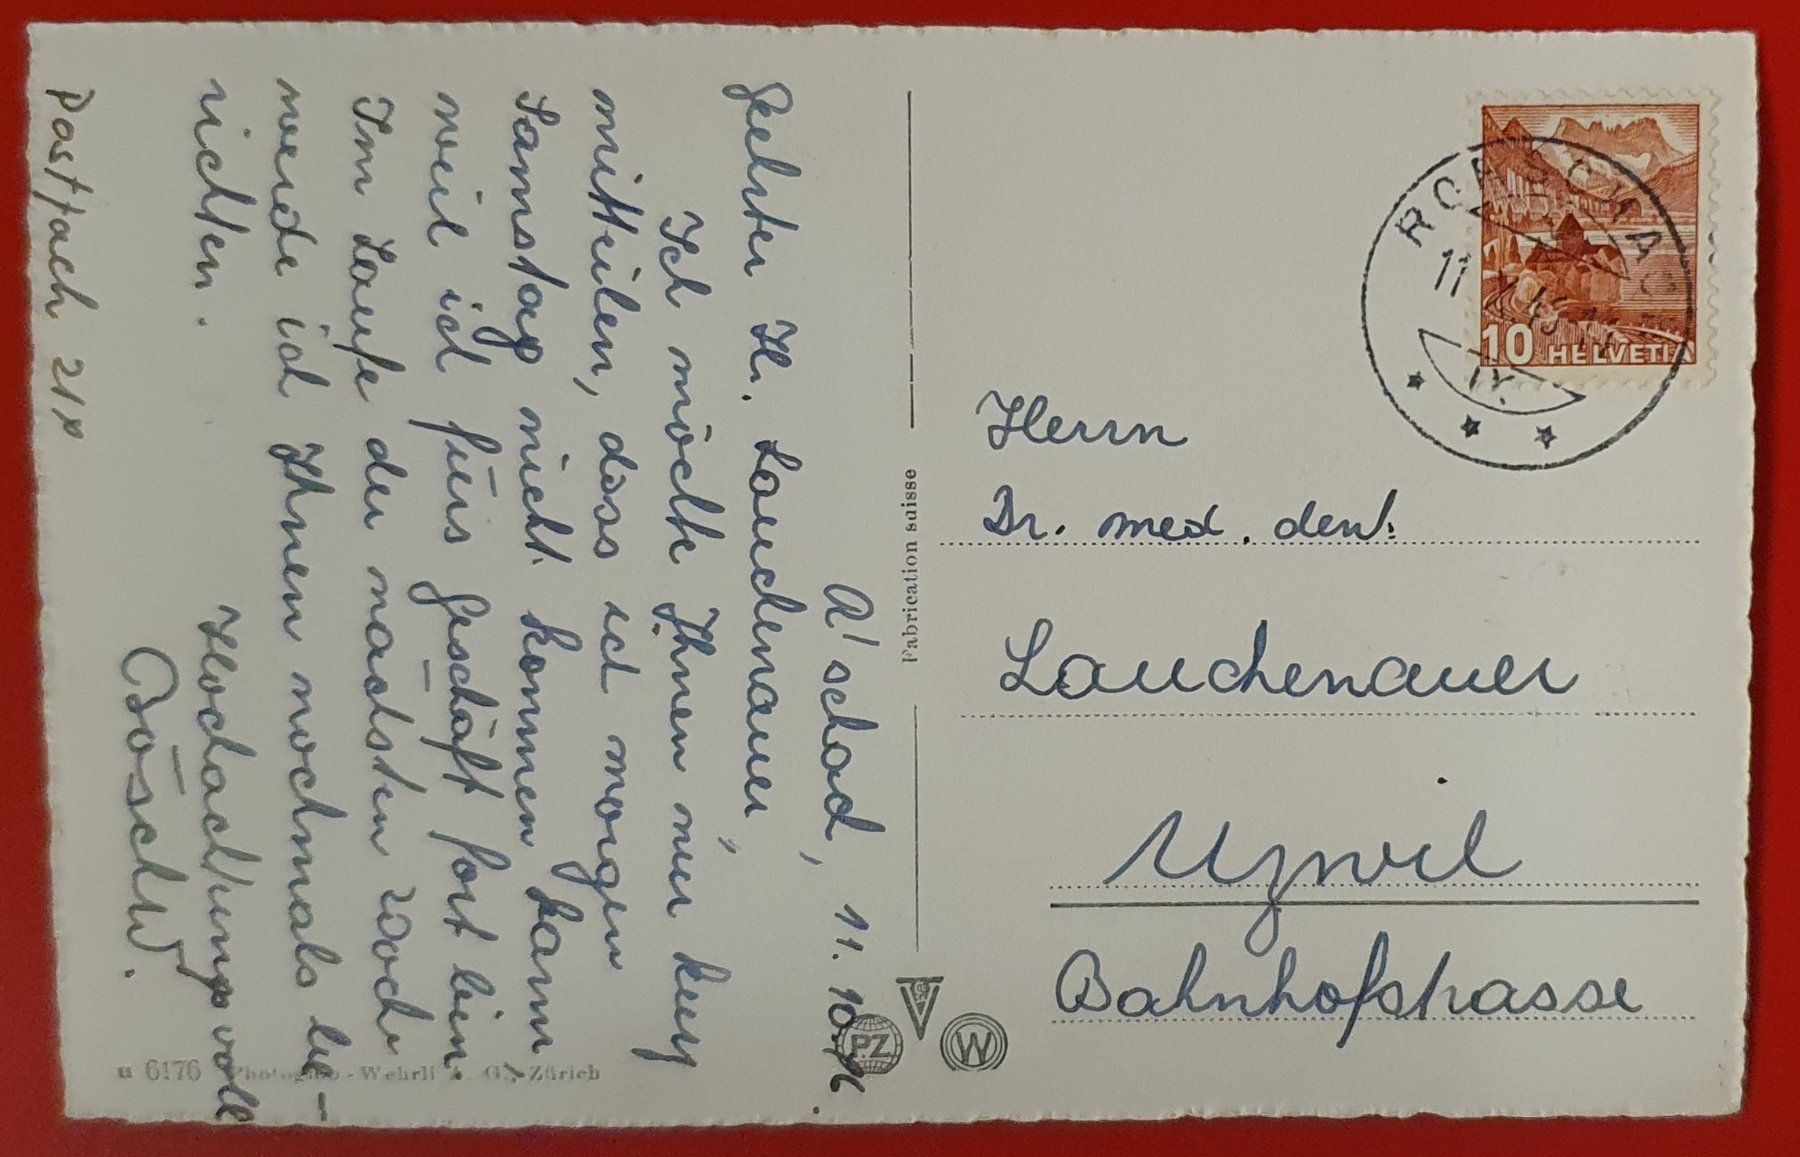 A'schach, 11. 10.
Geehrter Hr. Lauchenauer,
Ich möchte Ihnen nur kurz
mitteilen, dass ich morgen
Samstag nicht kommen kann,
weil ich fürs Geschäft fort bin.
Im Laufe der nächsten Woche
werde ich Ihnen nochmals be-
richten.
Hochachtungsvoll
Postfach 218
Fabrication suisse
u 6176 Photoglob-Wehrli A. G., Zürich
PZ
W
10 HELVETIA
RORSCHACH
11
Herrn
Dr. med. dent.
Lauchenauer
Uzwil
Bahnhofstrasse